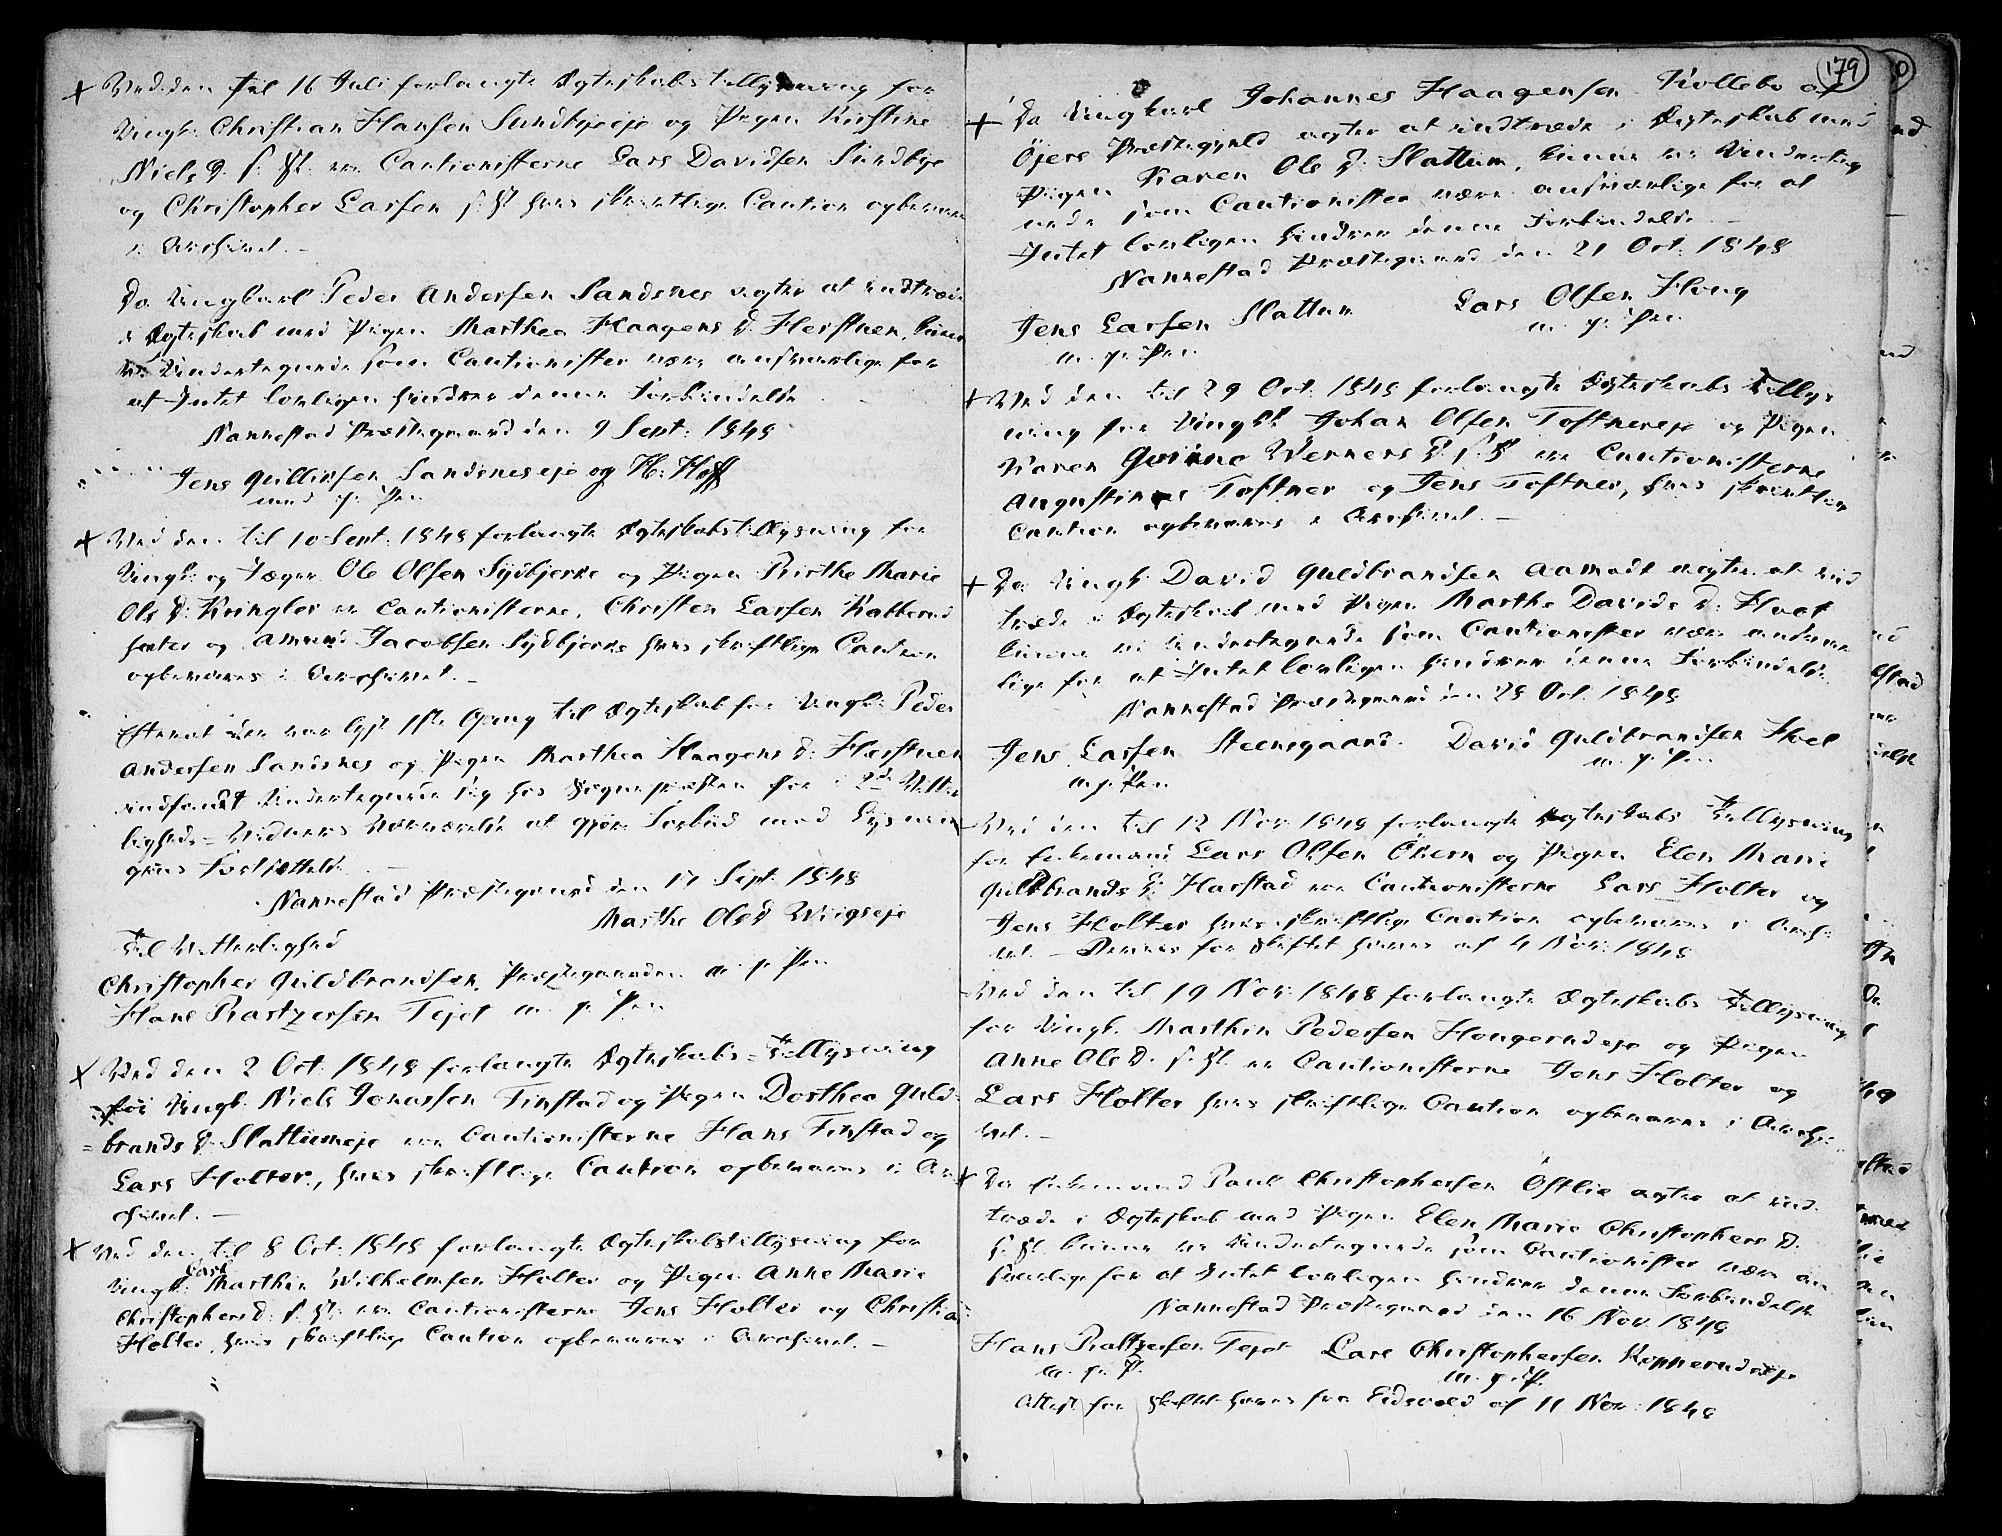 + Ved den til 16 Juli forlangte Ægteskabstillysning for
Ungk: Christian Hansen Sundbyeeje og Pigen Kirstine
Niels D. s. St. ere Cautionisterne Lars Davidsen Sundbye
og Christopher Larsen s. St. hvis skriftlige Caution opbevares
i Archivet. –
Da Ungkarl Peder Andersen Sandsnes agter at indtræde
i Ægteskab med Pigen Marthea Haagens D. Herstuen, kunne
vi Undertegnede som Cautionister være ansvarlige for
at Intet lovligen hindrer denne Forbindelse
Nannestad Præstegaard den 9 Sept. 1848
Jens Gulliksen Sandsneseje og H: Hoff
med p: Pen
+ Ved den til 10 Sept: 1848 forlangte Ægteskabstillysning for
Ungk: og Jæger Ole Olsen Sydbjerke og Pigen Birthe Marie
Ols D. Kringler ere Cautionisterne, Christen Larsen Kabberud
sæter og Amund Jacobsen Sydbjerke hvis skriftlige Caution
opbevares i Archivet. –
Efterat der var lyst 1ste Gang til Ægteskab for Ungk: Peder
Andersen Sandsnes og Pigen Marthea Haagens D: Herstuen
indfandt Undertegnede sig hos Sognepræsten for i 2de Vitter-
ligheds-Vidners Nærværelse at gjøre Forbud mod Lysnin-
gens Fortsættelse. –
Nannestad Præstegaard den 17 Sept. 1848
Marthe Ols D Wiigseje
Til Vitterlighed
Christopher Guldbrandsen, Præstegaarden m. p. Pen
Hans Raszersen Tejet m. p. Pen
+ Ved den 2 Oct. 1848 forlangte Ægteskabs-Tillysning
for Ungk: Niels Jonassen Finstad og Pigen Dorthea Guld-
=brands D. Slattumeje ere Cautionisterne Hans Finstad og
Lars Holter, hvis skriftlige Caution opbevares i Ar-
chivet. –
+ Ved den til 8 Oct: 1848 forlangte Ægteskabstillysning for
Ungk: Carl Marthin Wilhelmsen Holter og Pigen Anne Marie
Christophers D. s. St. ere Cautionisterne Jens Holter og Christian
Holter, hvis skriftlige Caution opbevares i Archivet. –
179
+ Da Ungkarl Johannes Haagensen Kollebo af
Øjers Præstegjeld agter at indtræde i Ægteskab med
Pigen Karen Ols D. Slattum, kunne vi Underteg-
nede som Cautionister være ansvarlige for at
Intet lovligen hindrer denne Forbindelse
Nannestad Præstegaard den 21 Oct. 1848
Jens Larsen Slattum Lars Olsen Houg
m. p. Pen m. p. Pen
+ Ved den til 29 Oct. 1848 forlangte Ægteskabs Tillys-
ning for Ungk: Johan Olsen Toftnereje og Pigen
Karen Gurine Werners D. s. St ere Cautionisterne
Augustinus Toftner og Jens Toftner, hvis skriftlige
Caution opbevares i Archivet. –
+ Da Ungk: David Guldbrandsen Aamodt agter at ind
træde i Ægteskab med Pigen Marthe Davids D. Hoel
kunne vi Undertegnede som Cautionister være ansvar
lige for at Intet lovligen hindrer denne Forbindelse.
Nannestad Præstegaard den 28 Oct. 1848
Jens Larsen Steensgaard. David Guldbrandsen Hoel
m. p. Pen m. p. Pen
Ved den til 12 Nov. 1848 forlangte Ægteskabs Tillysning
for Enkemand Lars Olsen Økern og Pigen Elen Marie
Guldbrands D: Harstad ere Cautionisterne Lars Holter og
Jens Holter hvis skriftlige Caution opbevares i Archi-
vet. – Beviis for Skiftet haves af 4 Nov: 1848
Ved den til 19 Nov. 1848 forlangte Ægteskabs Tillysning
for Ungk. Marthin Pedersen Hongerudeje og Pigen
Anne Ole D. s. St. ere Cautionisterne Jens Holter og
Lars Holter hvis skriftlige Caution opbevares i Archi-
vet. –
+ Da Enkemand Paul Christophersen Østlie agter at ind-
træde i Ægteskab med Pigen Elen Marie Christophers D.
s. St. kunne vi Undertegnede som Cautionister være an
svarlige for at Intet lovligen hindrer denne Forbindelse
Nannestad Præstegaard den 16 Nov. 1848
Hans Raszersen Tejet Lars Christophersen Kopperudeje
m. p. P. m. p. P.
Attest for Skiftet haves fra Eidsvold af 11 Nov. 1848